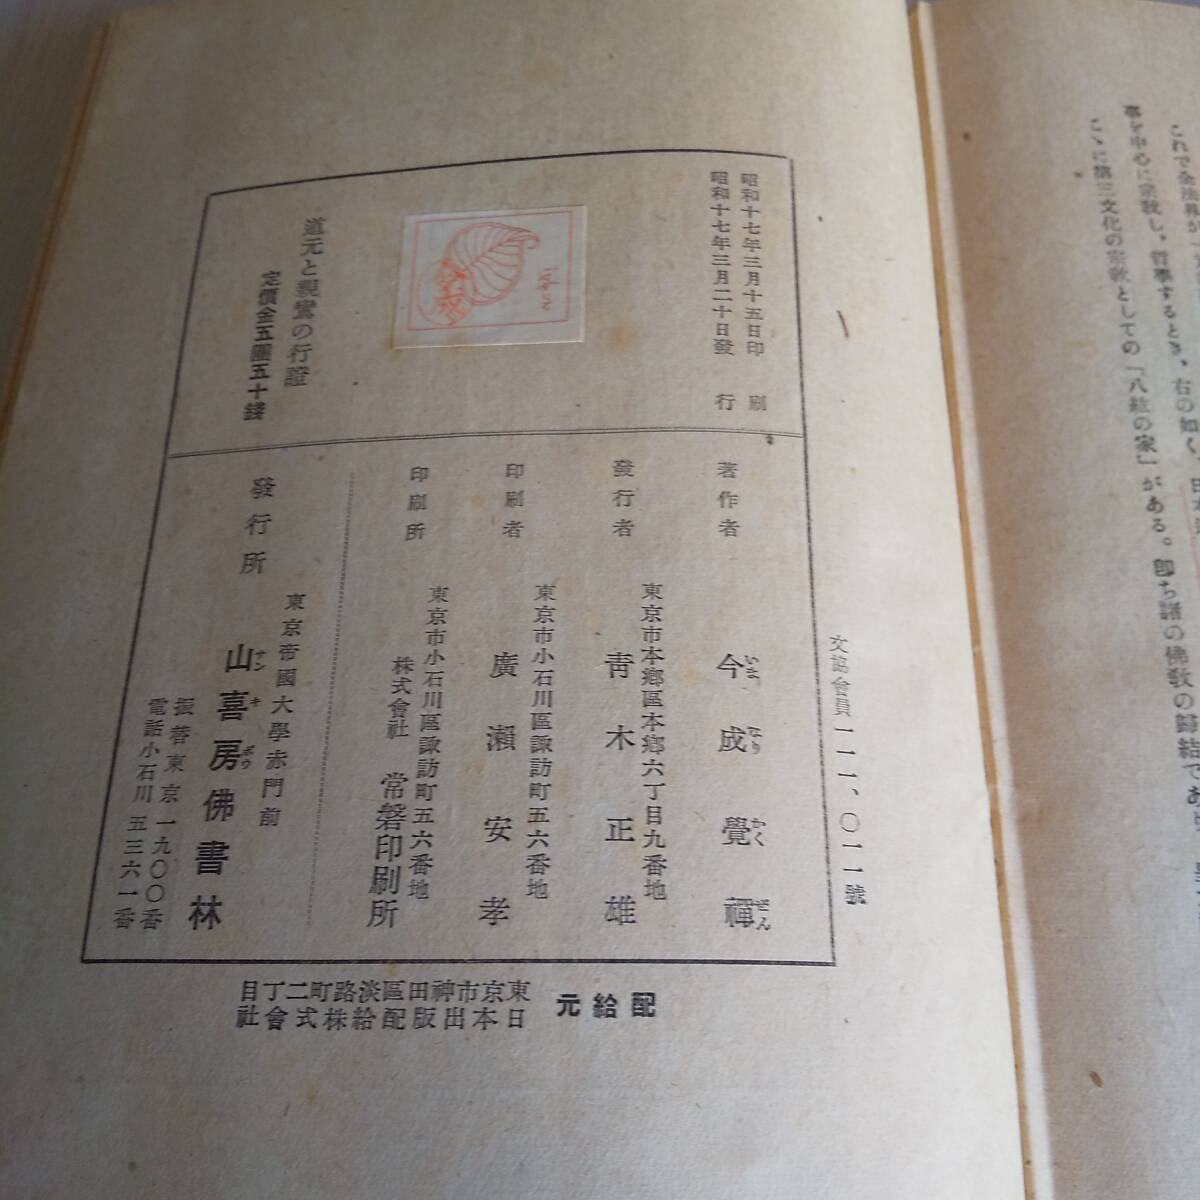 これで全法界が
事を中心に宗教し、哲學するとき、右の如く、
こゝに第三文化の宗教としての「八紘の家」がある。卽ち諸の佛敎の歸結であ
文協會員一一一、〇一一號
昭和十七年三月十五日印刷
昭和十七年三月二十日發行
道元と親鸞の行證
定價金五圓五十錢
著作者 今成覺禪
いま なり かく ぜん
東京市本鄕區本鄕六丁目九番地
發行者 靑木正雄
東京市小石川區諏訪町五六番地
印刷者 廣瀨安孝
東京市小石川區諏訪町五六番地
印刷所 株式會社 常磐印刷所
東京帝國大學赤門前
發行所 山喜房佛書林
サン キ ボウ
振替東京一九〇〇番
電話小石川五三六一番
配給元
東京市神田區淡路町二丁目
日本出版配給株式會社